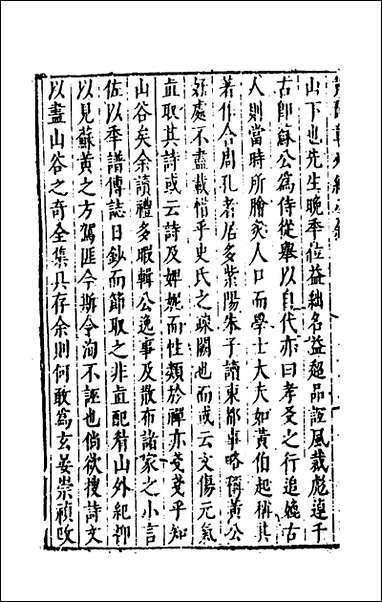 山下也先生晚年位益絀名益超品誼風裁彪蓬千
古卽蘇公爲侍從舉以自代亦曰孝友之行追媲古
人則當時所膾炙人口而學士大夫如黃伯起稱其
著作合周孔者居多紫陽朱子讀東都事略稱黃公
好處不盡載惜乎史氏之疎闕也而或云文傷元氣
直取其詩或云詩及婢妮而性類於禪亦戔戔乎知
山谷矣余讀禮多暇輯公逸事及散布諸家之小言
佐以年譜傳誌日鈔而節取之非直配藉山外紀抑
以見蘇黃之方駕匪今斯今洵不誣也倘欲搜詩文
以盡山谷之奇全集具存余則何敢爲玄晏崇禎改